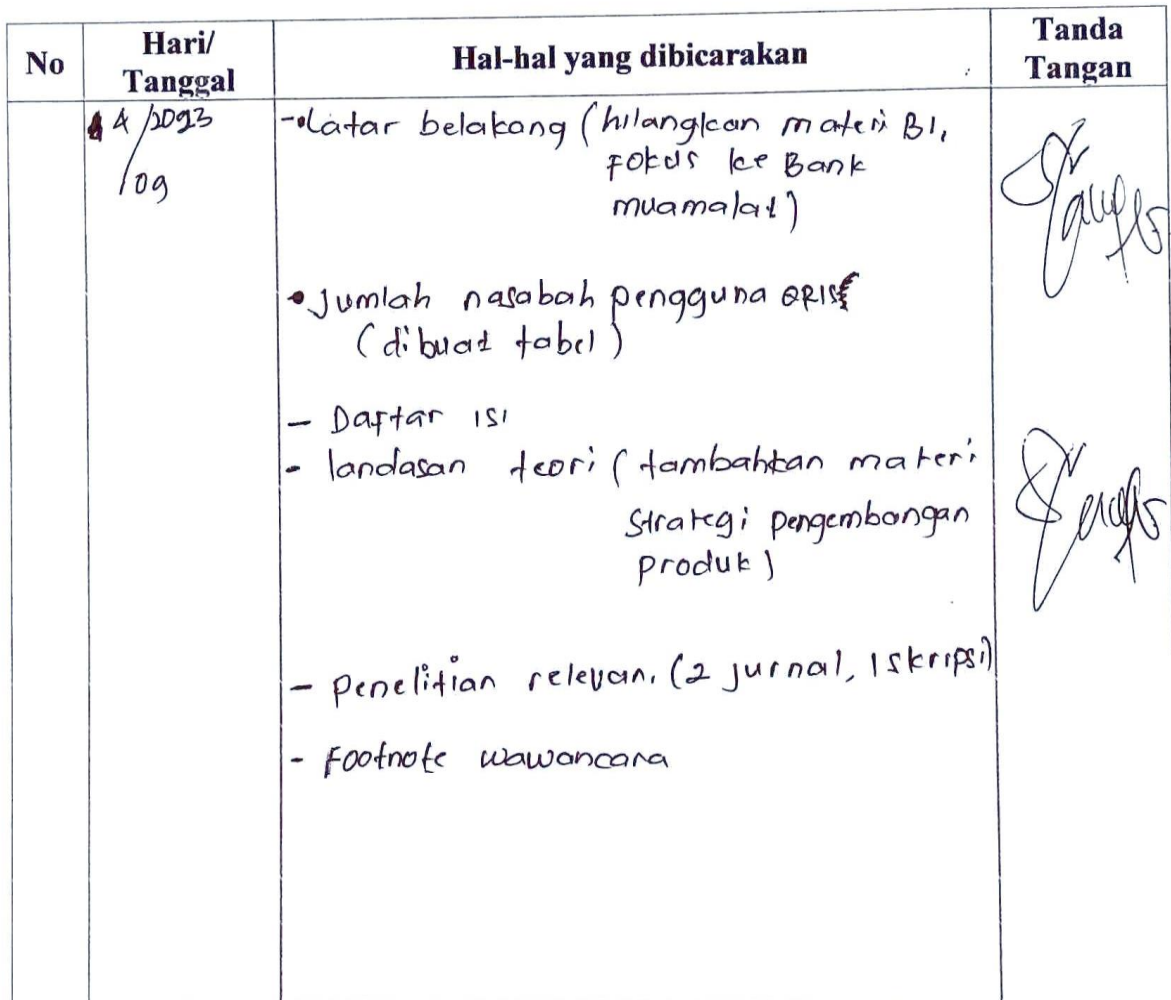 No
Hari/
Tanggal
Hal-hal yang dibicarakan
Tanda
Tangan
4/2023
/09
- Latar belakang (hilangkan materi BI,
Fokus ke Bank
muamalat)
• Jumlah nasabah pengguna QRIS
(dibuat tabel)
- Daftar isi
- landasan teori (tambahkan materi
Strategi pengembangan
produk)
- Penelitian relevan. (2 jurnal, 1 skripsi)
- Footnote wawancara